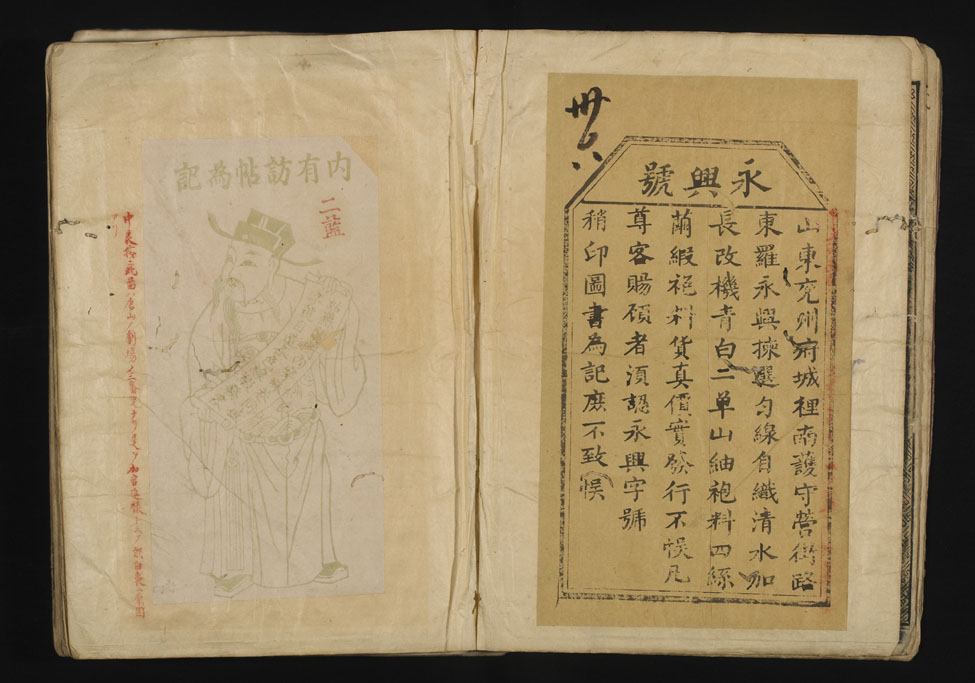 卅八
永興號
山東兖州府城裡南護守營街路
東羅永興揀選勻線自織清水加
長改機青白二单山紬袍料四絲
繭緞袍料貨真價實發行不悮凡
尊客賜顾者須認永興字號
稍印圖書為記庶不致悮
内有訪帖為記
二藍